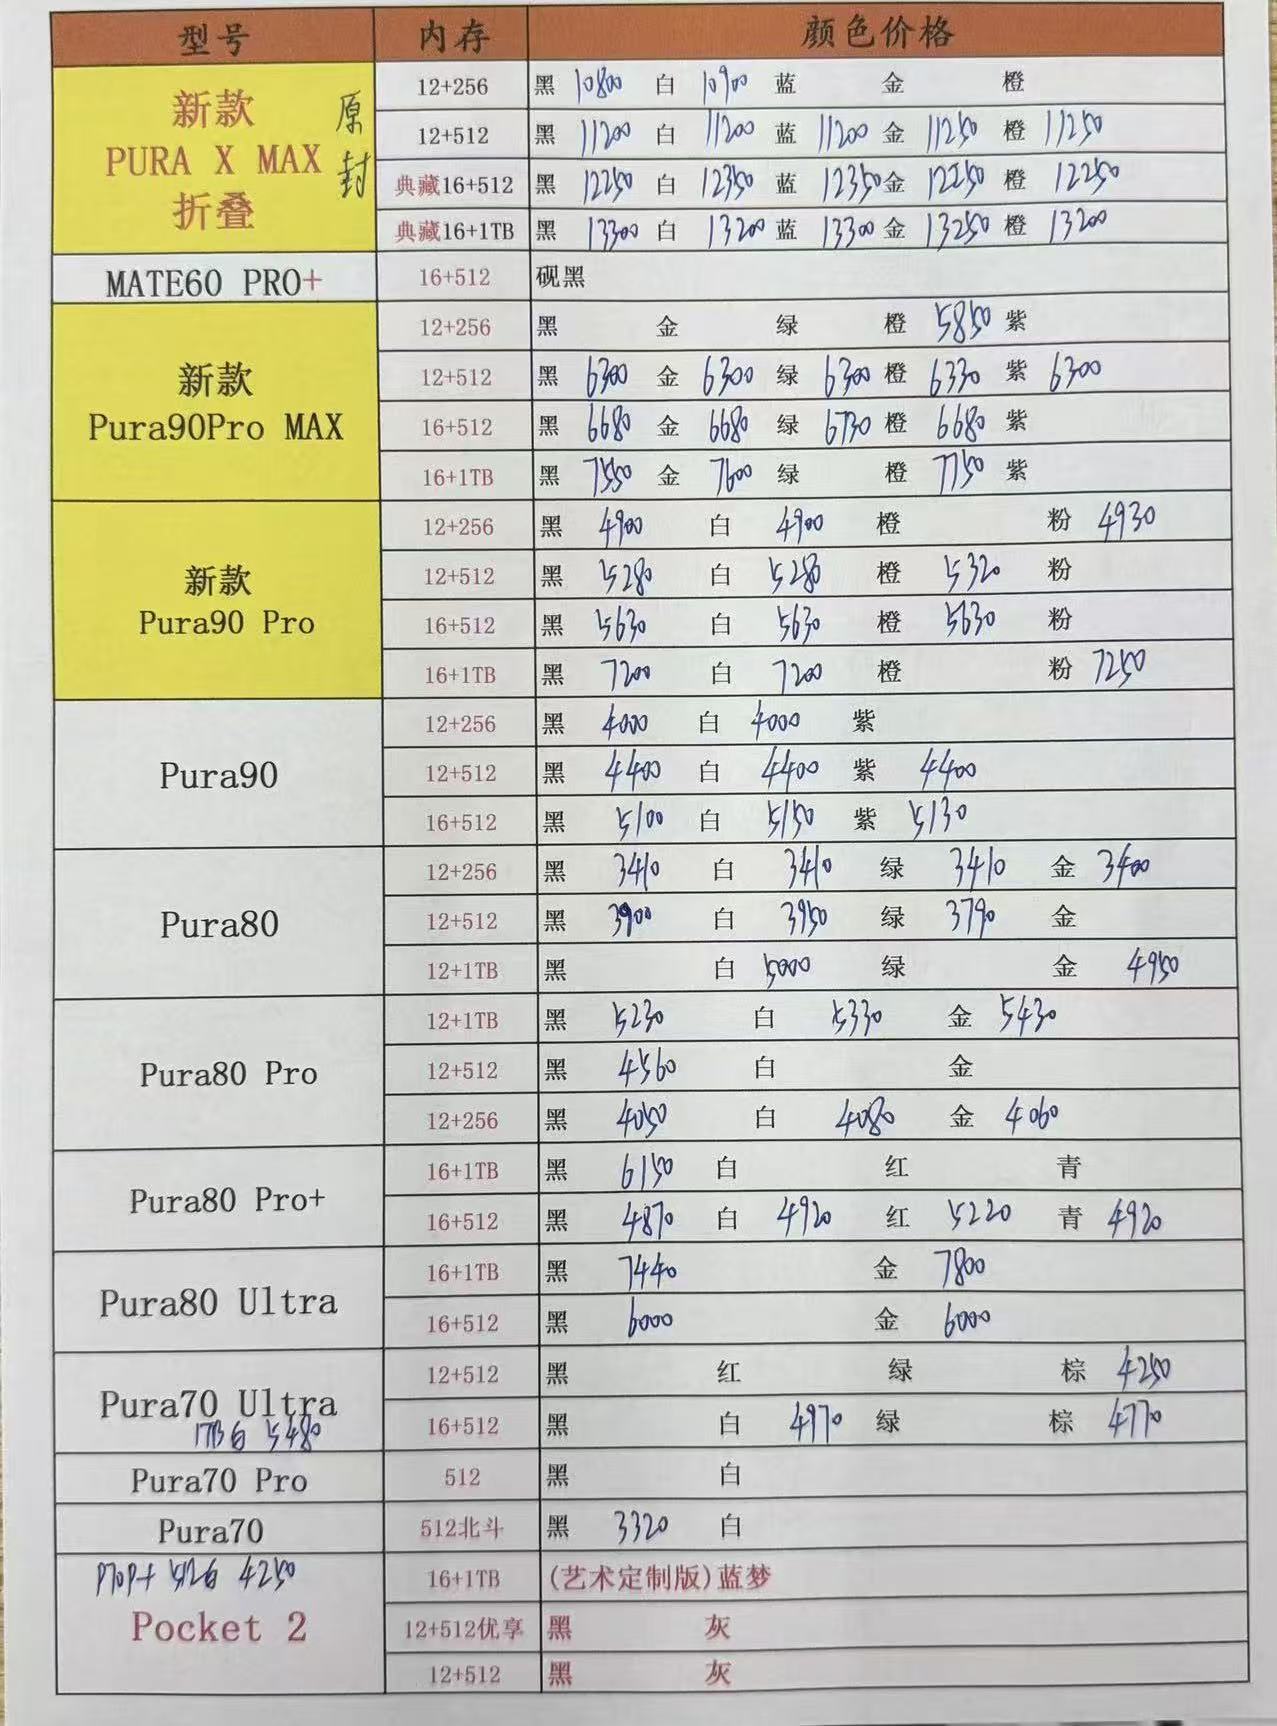 型号 内存 颜色价格
新款 PURA X MAX 折叠 原封
12+256 黑 10800 白 10900 蓝 金 橙
12+512 黑 11200 白 11200 蓝 11200 金 11250 橙 11250
典藏16+512 黑 12250 白 12350 蓝 12350 金 12250 橙 12250
典藏16+1TB 黑 13300 白 13200 蓝 13300 金 13250 橙 13200
MATE60 PRO+ 16+512 砚黑
新款 Pura90Pro MAX
12+256 黑 金 绿 橙 5850 紫
12+512 黑 6300 金 6300 绿 6300 橙 6330 紫 6300
16+512 黑 6680 金 6680 绿 6730 橙 6680 紫
16+1TB 黑 7550 金 7600 绿 橙 7750 紫
新款 Pura90 Pro
12+256 黑 4900 白 4900 橙 粉 4930
12+512 黑 5280 白 5280 橙 5320 粉
16+512 黑 5630 白 5630 橙 5630 粉
16+1TB 黑 7200 白 7200 橙 粉 7250
Pura90
12+256 黑 4000 白 4000 紫
12+512 黑 4400 白 4400 紫 4400
16+512 黑 5100 白 5150 紫 5130
Pura80
12+256 黑 3410 白 3410 绿 3410 金 3400
12+512 黑 3900 白 3950 绿 3790 金
12+1TB 黑 白 5000 绿 金 4950
Pura80 Pro
12+1TB 黑 5230 白 5330 金 5430
12+512 黑 4560 白 金
12+256 黑 4050 白 4080 金 4060
Pura80 Pro+
16+1TB 黑 6150 白 红 青
16+512 黑 4870 白 4920 红 5220 青 4920
Pura80 Ultra
16+1TB 黑 7440 金 7800
16+512 黑 6000 金 6000
Pura70 Ultra
1TB白 5480
12+512 黑 红 绿 棕 4250
16+512 黑 白 4970 绿 棕 4770
Pura70 Pro 512 黑 白
Pura70 512北斗 黑 3320 白
P70P+ 512白 4250
Pocket 2
16+1TB (艺术定制版)蓝梦
12+512优享 黑 灰
12+512 黑 灰